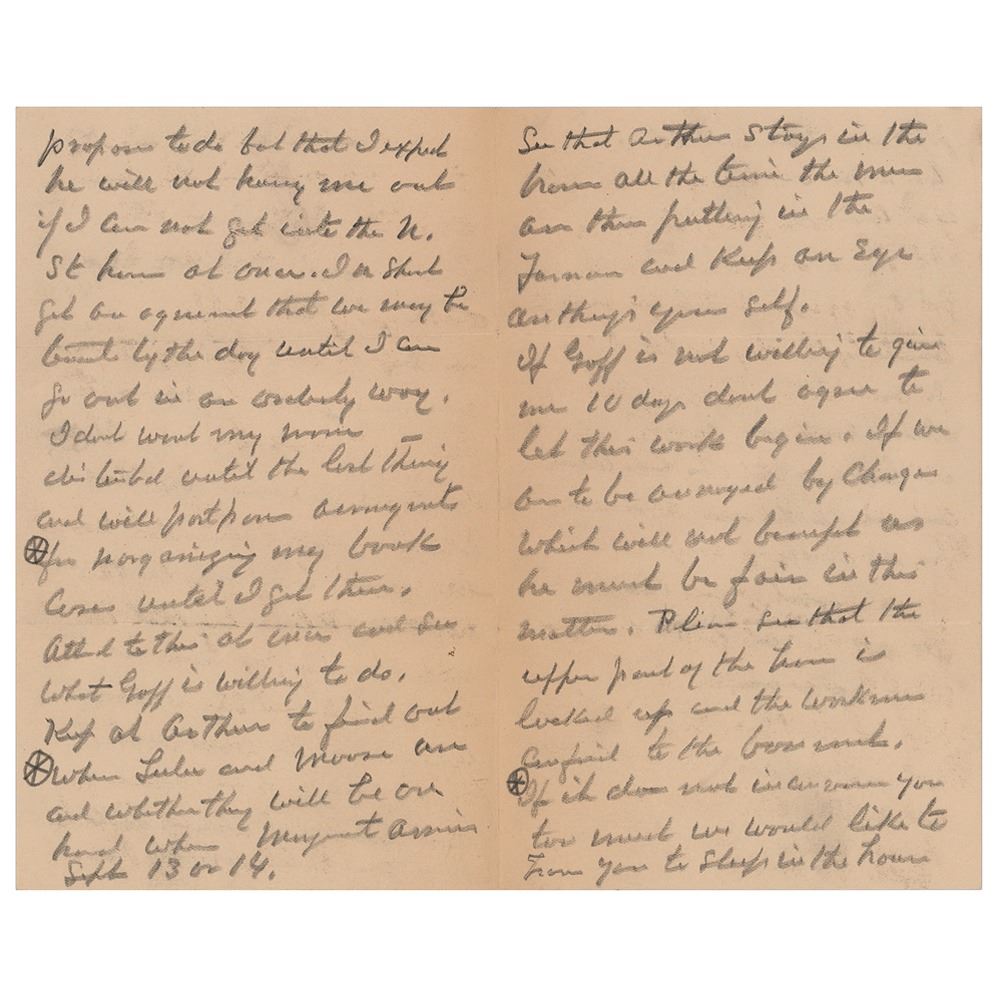 propose to do but that I expect
he will not hurry me out
if I can not get into the N.
St house at once. I
get an agreement that we may be
by the day until I can
go out in an orderly way.
I dont want my room
disturbed until the last thing
and will postpone arrangements
for reorganizing my book
Cases until I get there.
Attend to this at once and see
what Goff is willing to do.
Keep at Arthur to find out
when Lulu and Moose are
and whether they will be on
hand when Margaret arrives
Sept 13 or 14.
See that Arthur Stays in the
house all the time the men
are there putting in the
Furnace and Keep an Eye
on things your self.
If Goff is not willing to give
me 10 days dont agree to
let this work begin. If we
are to be annoyed by Changes
which will not benefit us
he must be fair in this
matter. Please see that the
upper part of the house is
locked up and the workmen
confined to the basement.
If it does not inconvenience you
too much we would like to
have you to sleep in the house